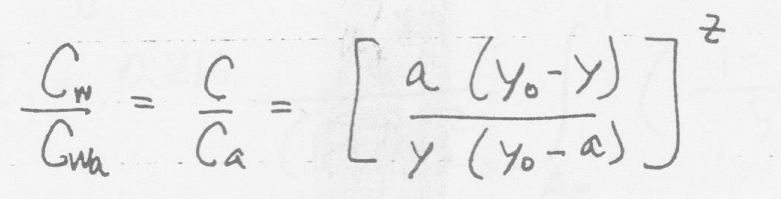 C_w / C_wa = C / C_a = [ a (y_0 - y) / y (y_0 - a) ]^z